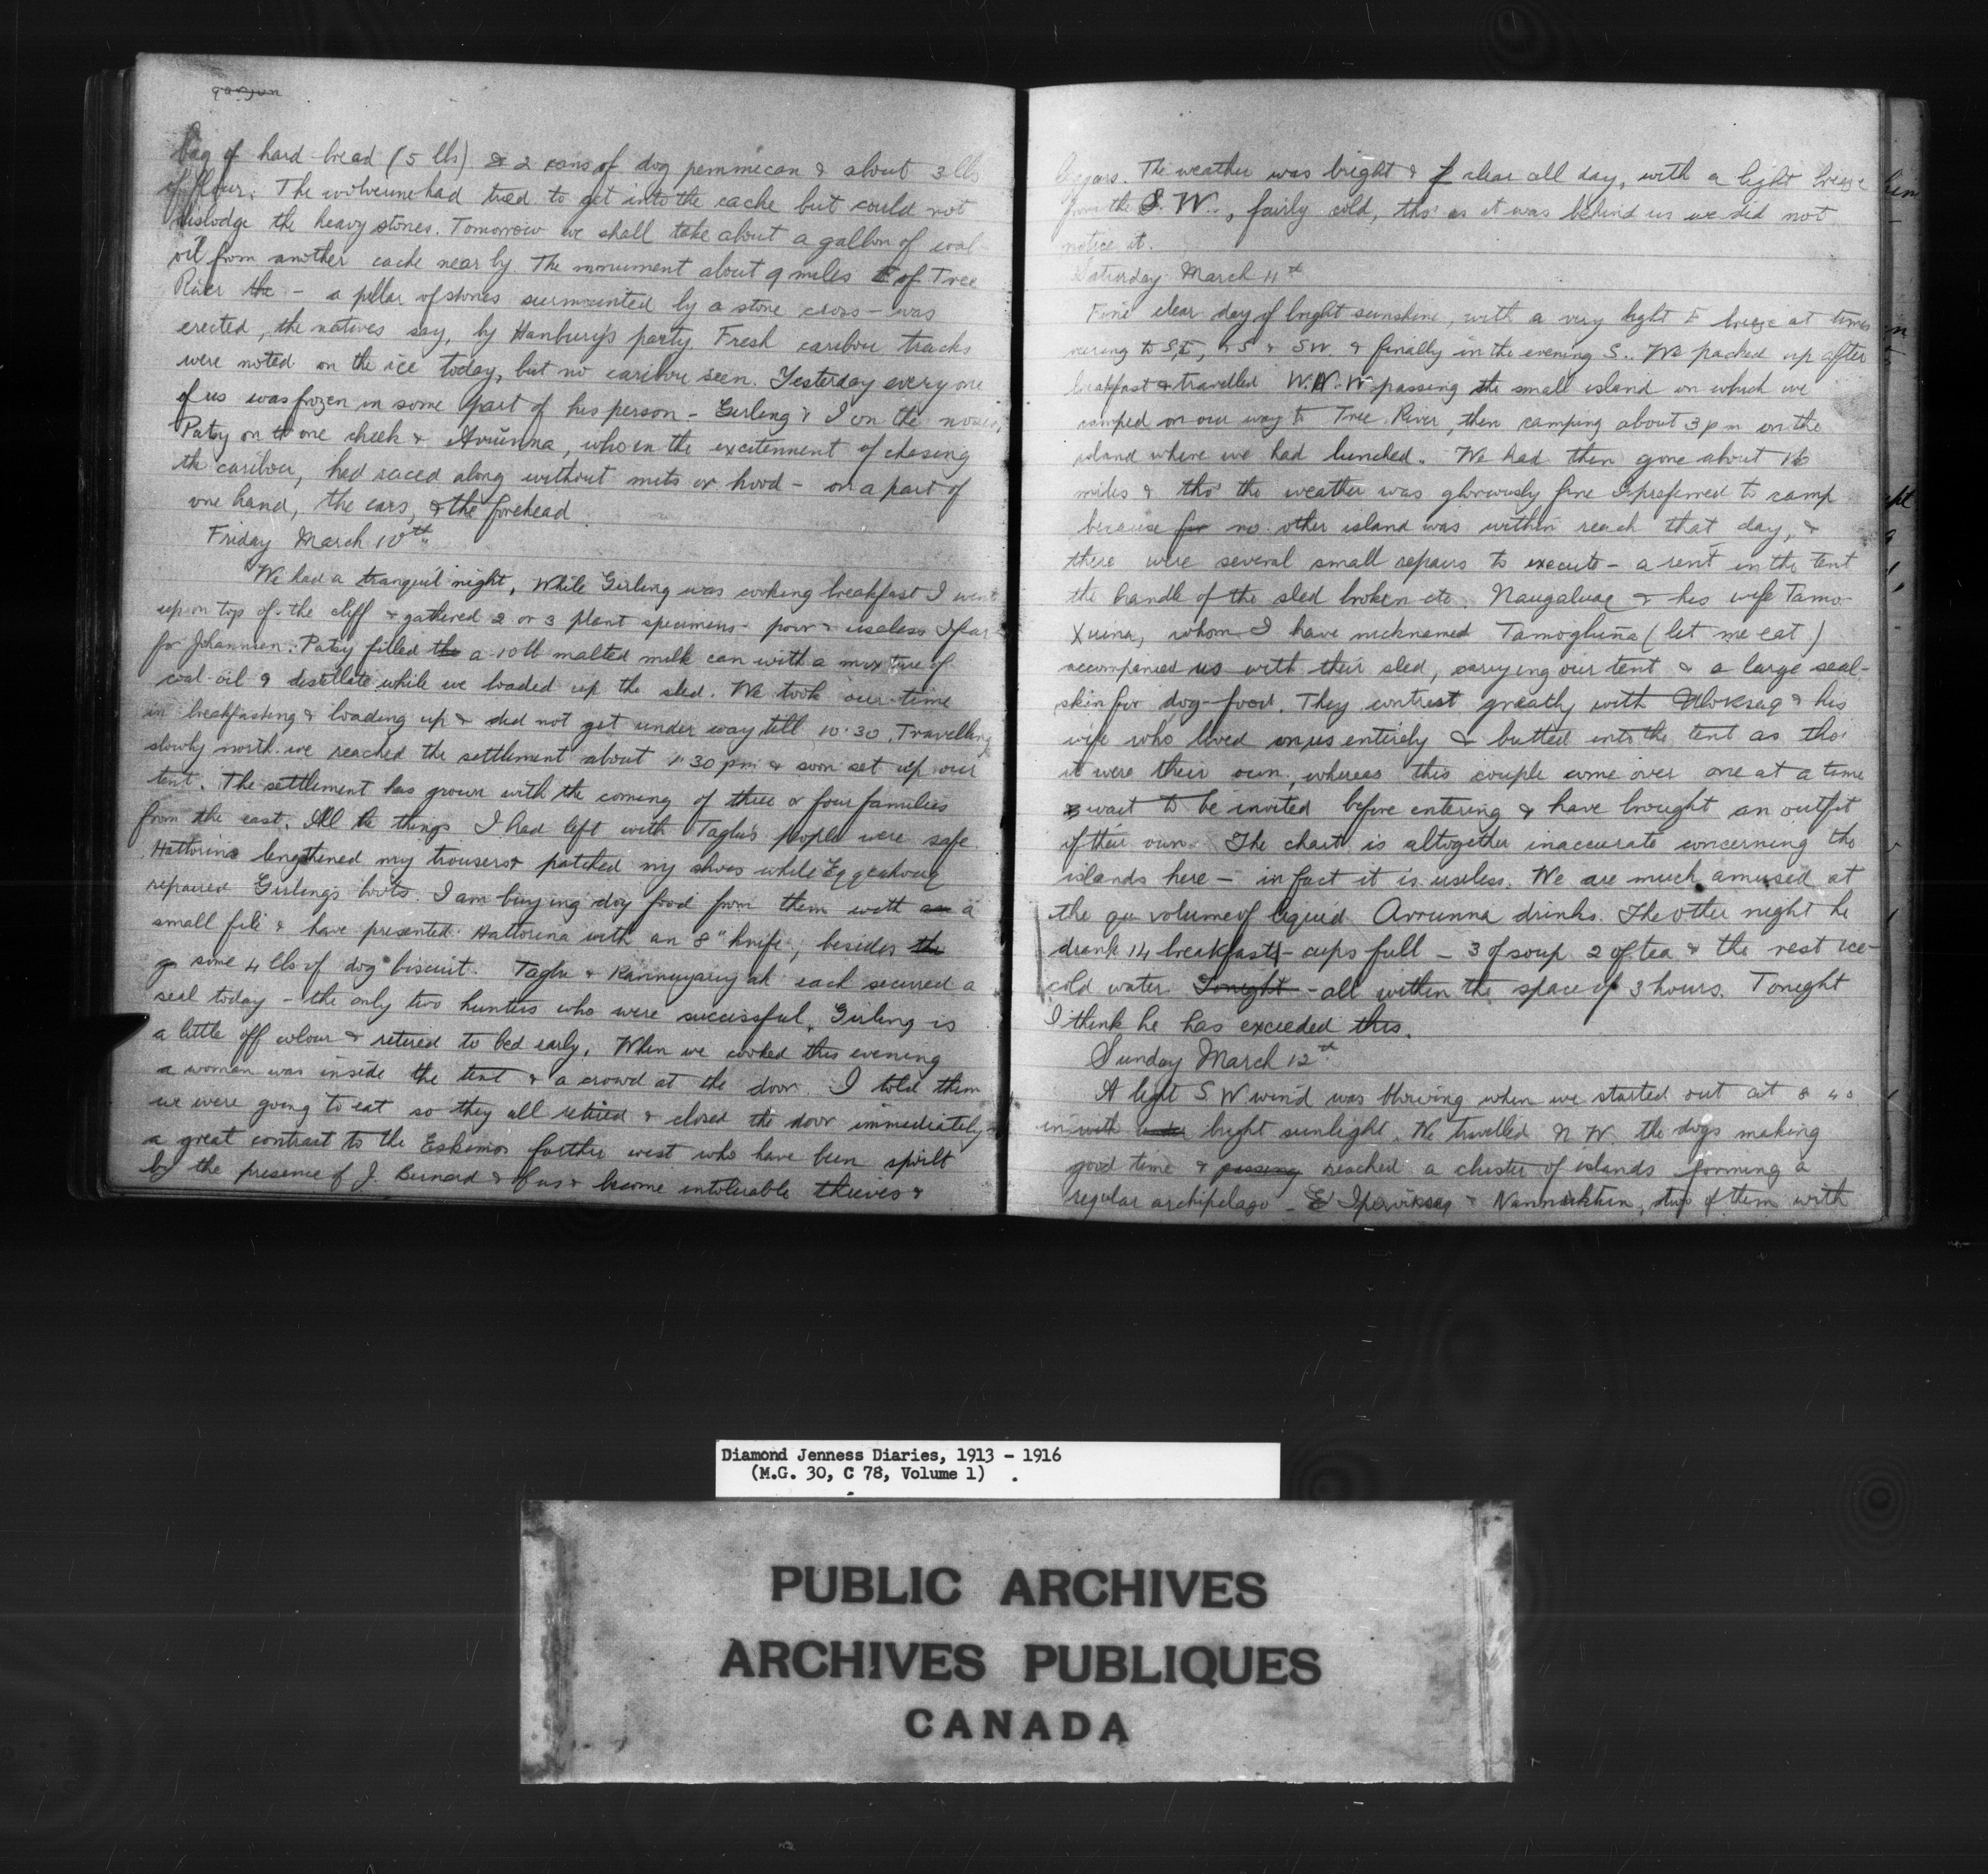 bag of hard bread (5 lbs) & 2 cans of dog pemmican & about 3 lbs
of flour. The wolverine had tried to get into the cache but could not
dislodge the heavy stones. Tomorrow we shall take about a gallon of coal-
oil from another cache near by. The monument about 9 miles E of Tree
River the - a pillar of stones surmounted by a stone cross - was
erected, the natives say, by Hanbury's party. Fresh caribou tracks
were noted on the ice today, but no caribou seen. Yesterday everyone
of us was frozen in some part of his person - Girling & I on the noses,
Patsy on one cheek & Avrunna, who in the excitement of chasing
the caribou, had raced along without mits or hood - on a part of
one hand, the ears, & the forehead
Friday March 10th
We had a tranquil night. While Girling was cooking breakfast I went
up on top of the cliff & gathered 2 or 3 plant specimens - poor & useless I fear
for Johannsen. Patsy filled the a 10 lb malted milk can with a mixture of
coal oil & distillate while we loaded up the sled. We took our time
in breakfasting & loading up & did not get under way till 10·30. Travelling
slowly north we reached the settlement about 1·30 pm & soon set up our
tent. The settlement has grown with the coming of three or four families
from the east. All the things I had left with Taglu's people were safe.
Hattorina lengthened my trousers & patched my shoes while
repaired Girling's boots. I am buying dog food from them with a
small file & have presented Hattorina with an 8" knife, besides the
some 4 lbs of dog biscuit. Taglu & each secured a
seal today - the only two hunters who were successful. Girling is
a little off colour & retired to bed early. When we cooked this evening
a woman was inside the tent & a crowd at the door. I told them
we were going to eat so they all retired & closed the door immediately -
a great contrast to the Eskimos farther west who have been spoilt
by the presence of J. Bernard & of us & become intolerable thieves &
beggars. The weather was bright & clear all day, with a light breeze
from the S.W., fairly cold, tho' as it was behind us we did not
notice it.
Saturday March 11th
Fine clear day of bright sunshine, with a very light E breeze at times
veering to SE, & S & SW. & finally in the evening S.. We packed up after
breakfast & travelled W.N.W passing the small island on which we
camped on our way to Tree River, then camping about 3 pm on the
island where we had lunched. We had then gone about 16
miles & tho' the weather was gloriously fine I preferred to camp
because for no other island was within reach that day, &
there were several small repairs to execute - a rent in the tent
the handle of the sled broken etc. Naugaluaq & his wife Tamo-
xuina, whom I have nicknamed Tamogluña (let me eat)
accompanied us with their sled, carrying our tent & a large seal-
skin for dog-food. They contrast greatly with Uloksaq & his
wife who lived on us entirely & butted into the tent as tho'
it were their own, whereas this couple come over one at a time
& wait to be invited before entering & have brought an outfit
of their own. The chart is altogether inaccurate concerning the
islands here - in fact it is useless. We are much amused at
the qu volume of liquid Avrunna drinks. The other night he
drank 14 breakfast-cups full - 3 of soup 2 of tea & the rest ice-
cold water Tonight - all within the space of 3 hours. Tonight
I think he has exceeded this.
Sunday March 12th
A light S W wind was blowing when we started out at 8 40
in with bright sunlight. We travelled N W. the dogs making
good time & passing reached a cluster of islands forming a
regular archipelago - & , two of them with
Diamond Jenness Diaries, 1913 - 1916
(M.G. 30, C 78, Volume 1)
PUBLIC ARCHIVES
ARCHIVES PUBLIQUES
CANADA